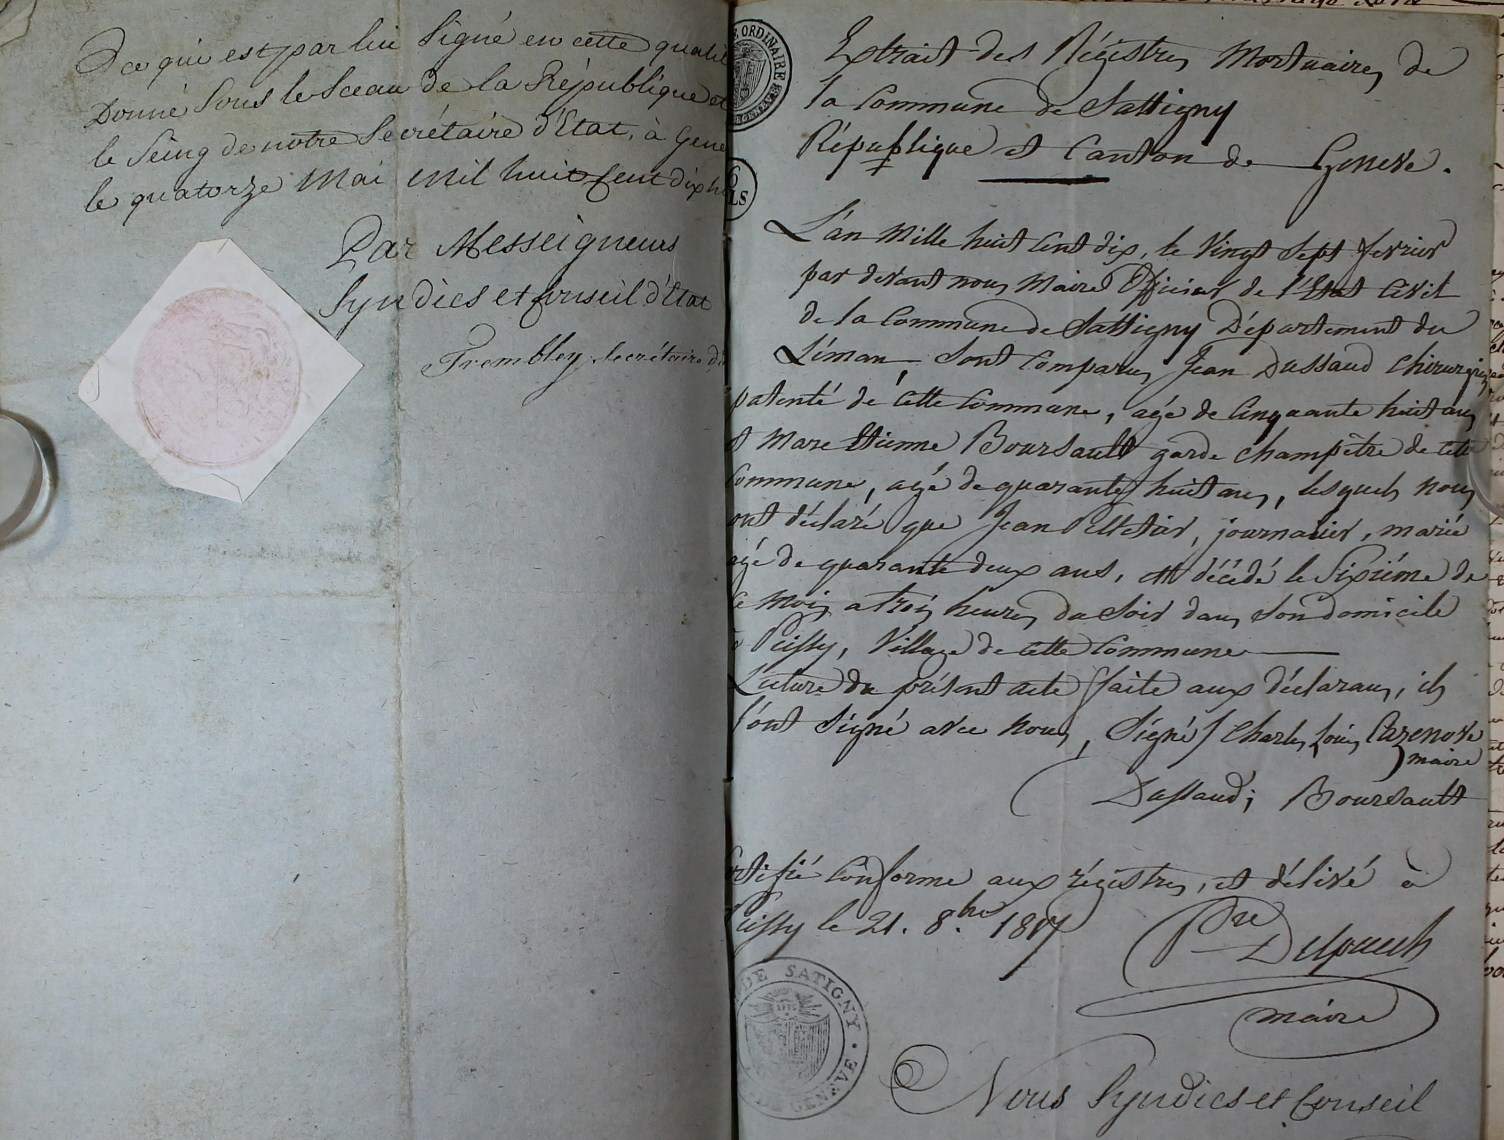 De qui est par lui Signé en cette qualit
Donné Sous le Sceau de la République et
le Seing de notre Secrétaire d'Etat, à Gene
le quatorze Mai mil huit cent dix h
Par Messeigneurs
Syndics et Conseil d'Etat
Trembley Secrétaire d
ORDINAIRE
6
LS
Extrait des Régistres Mortuaires de
la Commune de Sattigny
République et Canton de Geneve.
L'an Mille huit cent dix, le Vingt Sept fevrier
par devant nous Maire Officier de l'Etat Civil
de la Commune de Sattigny Département du
Léman, Sont Comparus Jean Dussaud Chirurgien
patenté de cette Commune, agé de Cinquante huit ans
et Marc Etienne Boursault garde champêtre de cette
Commune, agé de quarante huit ans, lesquels nous
ont déclaré que Jean Pelletier, journalier, marié
agé de quarante deux ans, est décédé le Sixiéme de
ce mois a trois heures du Soir dans Son domicile
à Peissy, Village de cette Commune
Lecture du présent acte faite aux déclarans, ils
l'ont Signé avec nous, Signé / Charles Louis Cazenove
maire
Dussaud; Boursault
Certifié Conforme aux régistres, et délivré à
Peissy le 21. 8.bre 1817
Pre Delpuech
maire
DE SATIGNY
DE GENÈVE
Nous Syndics et Conseil